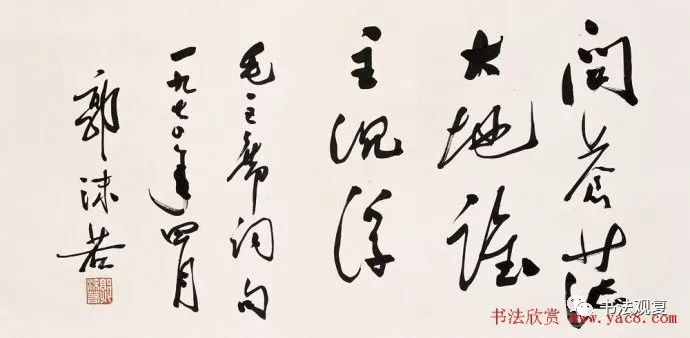 問蒼茫
大地誰
主沉浮
毛主席詞句
一九七〇年四月
郭沫若
书法观复
书法欣赏 www.yac8.com